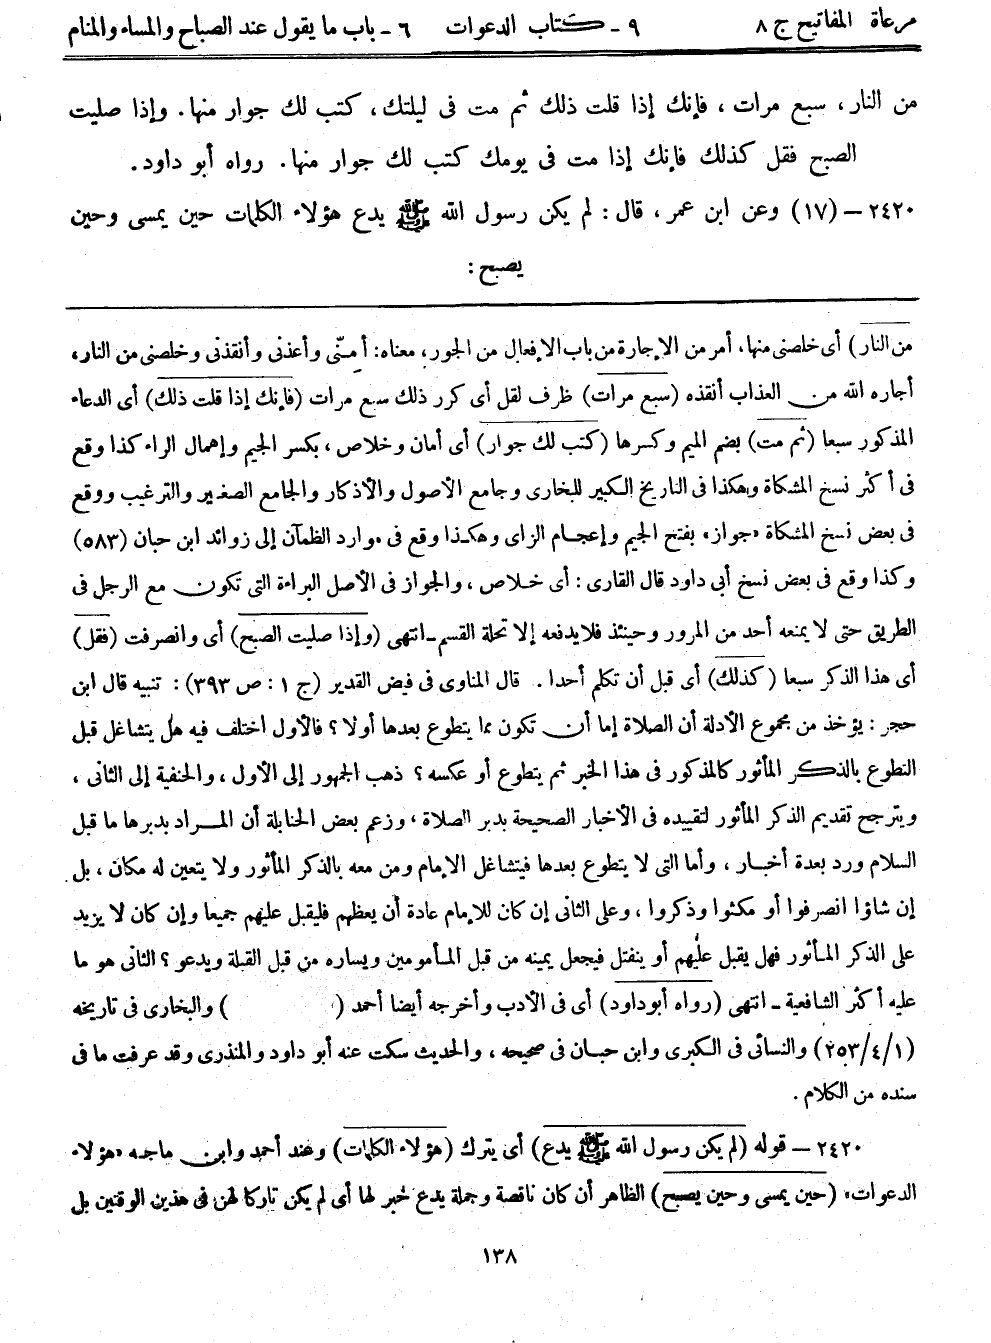 مرعاة المفاتيح ج ٨ ٩ - كتاب الدعوات ٦ - باب ما يقول عند الصباح والمساء والمنام
من النار، سبع مرات، فإنك إذا قلت ذلك ثم مت فى ليلتك، كتب لك جوار منها. وإذا صليت
الصبح فقل كذلك فإنك إذا مت فى يومك كتب لك جوار منها. رواه أبو داود.
٢٤٢٠ – (١٧) وعن ابن عمر، قال: لم يكن رسول الله ﷺ يدع هؤلاء الكلمات حين يمسى وحين
يصبح:
من النار) أى خلصنى منها، أمر من الإجارة من باب الإفعال من الجور، معناه: أمنّى وأعذنى وأنقذنى وخلصنى من النار،
أجاره الله من العذاب أنقذه (سبع مرات) ظرف لقل أى كرر ذلك سبع مرات (فإنك إذا قلت ذلك) أى الدعاء
المذكور سبعا (ثم مت) بضم الميم وكسرها (كتب لك جوار) أى أمان وخلاص، بكسر الجيم وإهمال الراء كذا وقع
فى أكثر نسخ المشكاة وهكذا فى التاريخ الكبير للبخارى وجامع الأصول والأذكار والجامع الصغير والترغيب ووقع
فى بعض نسخ المشكاة «جواز» بفتح الجيم وإعجام الزاى وهكذا وقع فى موارد الظمآن إلى زوائد ابن حبان (٥٨٣)
وكذا وقع فى بعض نسخ أبى داود قال القارى: أى خلاص، والجواز فى الأصل البراءة التى تكون مع الرجل فى
الطريق حتى لا يمنعه أحد من المرور وحينئذ فلا يدفعه إلا تحلة القسم - انتهى (وإذا صليت الصبح) أى وانصرفت (فقل)
أى هذا الذكر سبعا (كذلك) أى قبل أن تكلم أحدا. قال المناوى فى فيض القدير (ج ١: ص ٣٩٣): تنبيه قال ابن
حجر: يؤخذ من مجموع الأدلة أن الصلاة إما أن تكون مما يتطوع بعدها أولا؟ فالأول اختلف فيه هل يتشاغل قبل
التطوع بالذكر المأثور كالمذكور فى هذا الخبر ثم يتطوع أو عكسه؟ ذهب الجمهور إلى الأول، والحنفية إلى الثانى،
ويترجح تقديم الذكر المأثور لتقييده فى الأخبار الصحيحة بدبر الصلاة، وزعم بعض الحنابلة أن المراد بدبرها ما قبل
السلام ورد بعدة أخبار، وأما التى لا يتطوع بعدها فيتشاغل الإمام ومن معه بالذكر المأثور ولا يتعين له مكان، بل
إن شاؤا انصرفوا أو مكثوا وذكروا، وعلى الثانى إن كان للإمام عادة أن يعظهم فليقبل عليهم جميعا وإن كان لا يزيد
على الذكر المأثور فهل يقبل عليهم أو ينفتل فيجعل يمينه من قبل المأمومين ويساره من قبل القبلة ويدعو؟ الثانى هو ما
عليه أكثر الشافعية - انتهى (رواه أبو داود) أى فى الأدب وأخرجه أيضا أحمد ( ) والبخارى فى تاريخه
(٢٥٣/٤/١) والنسائى فى الكبرى وابن حبان فى صحيحه، والحديث سكت عنه أبو داود والمنذرى وقد عرفت ما فى
سنده من الكلام.
٢٤٢٠ – قوله (لم يكن رسول الله ﷺ يدع) أى يترك (هؤلاء الكلمات) وعند أحمد وابن ماجه «هؤلاء
الدعوات» (حين يمسى وحين يصبح) الظاهر أن كان ناقصة وجملة يدع خبر لها أى لم يكن تاركا لهن فى هذين الوقتين بل
١٣٨